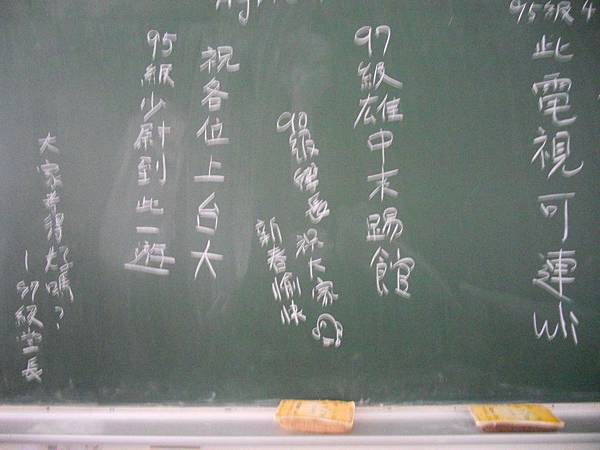 95級4
此電視可連wii
97級雄中來踢館
90級學長祝大家
新春愉快
祝各位上台大
95級少尉到此一遊
大家考得好嗎?
—97級堂長